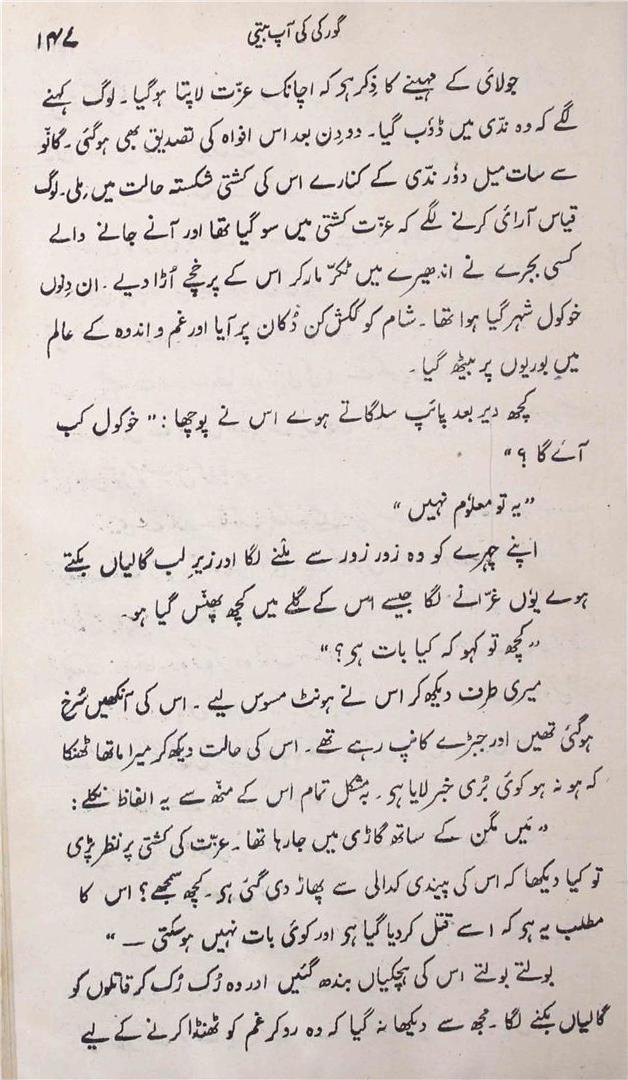 گورکی کی آپ بیتی
۱۴۷
جولائی کے مہینے کا ذِکر ہی کہ اچانک عزّت لاپتا ہوگیا۔ لوگ کہنے
لگے کہ وہ ندّی میں ڈوٗب گیا۔ دو دن بعد اس افواہ کی تصدیق بھی ہوگئی۔ گانوٗ
سے سات میل دوٗر ندّی کے کنارے اس کی کشتی شکستہ حالت میں مِلی۔ لوگ
قیاس آرائی کرنے لگے کہ عزّت کشتی میں سو گیا تھا اور آنے جانے والے
کسی بجرے نے اندھیرے میں ٹکرّ مار کر اس کے پرخچے اُڑا دیے۔ ان دِنوں
خوکول شہر گیا ہوا تھا۔ شام کو ککش کن دُکان پر آیا اور غم و اندوہ کے عالم
میں بوریوں پر بیٹھ گیا۔
کچھ دیر بعد پائپ سلگاتے ہوے اس نے پوچھا: "خوکول کب
آئے گا؟"
"یہ تو معلوٗم نہیں"
اپنے چہرے کو وہ زور زور سے ملنے لگا اور زیرِ لب گالیاں بکتے
ہوے یوٗں غرّانے لگا جیسے اس کے گلے میں کچھ پھنس گیا ہو۔
"کچھ تو کہو کہ کیا بات ہی؟"
میری طرف دیکھ کر اس نے ہونٹ مسوس لیے۔ اس کی آنکھیں سُرخ
ہوگئی تھیں اور جبڑے کانپ رہے تھے۔ اس کی حالت دیکھ کر میرا ماتھا ٹھنکا
کہ ہو نہ ہو کوئی بُری خبر لایا ہی۔ بہ مشکل تمام اس کے منھ سے یہ الفاظ نکلے:
"میَں مگن کے ساتھ گاڑی میں جا رہا تھا۔ عزّت کی کشتی پر نظر پڑی
تو کیا دیکھا کہ اس کی پیندی کدالی سے پھاڑ دی گئی ہی۔ کچھ سمجھے؟ اس کا
مطلب یہ ہی کہ اسے قتل کر دیا گیا ہی اور کوئی بات نہیں ہوسکتی —"
بولتے بولتے اس کی ہچکیاں بندھ گئیں اور وہ رُک رُک کر قاتلوں کو
گالیاں بکنے لگا۔ مجھ سے دیکھا نہ گیا کہ وہ رو کر غم کو ٹھنڈا کرنے کے لیے